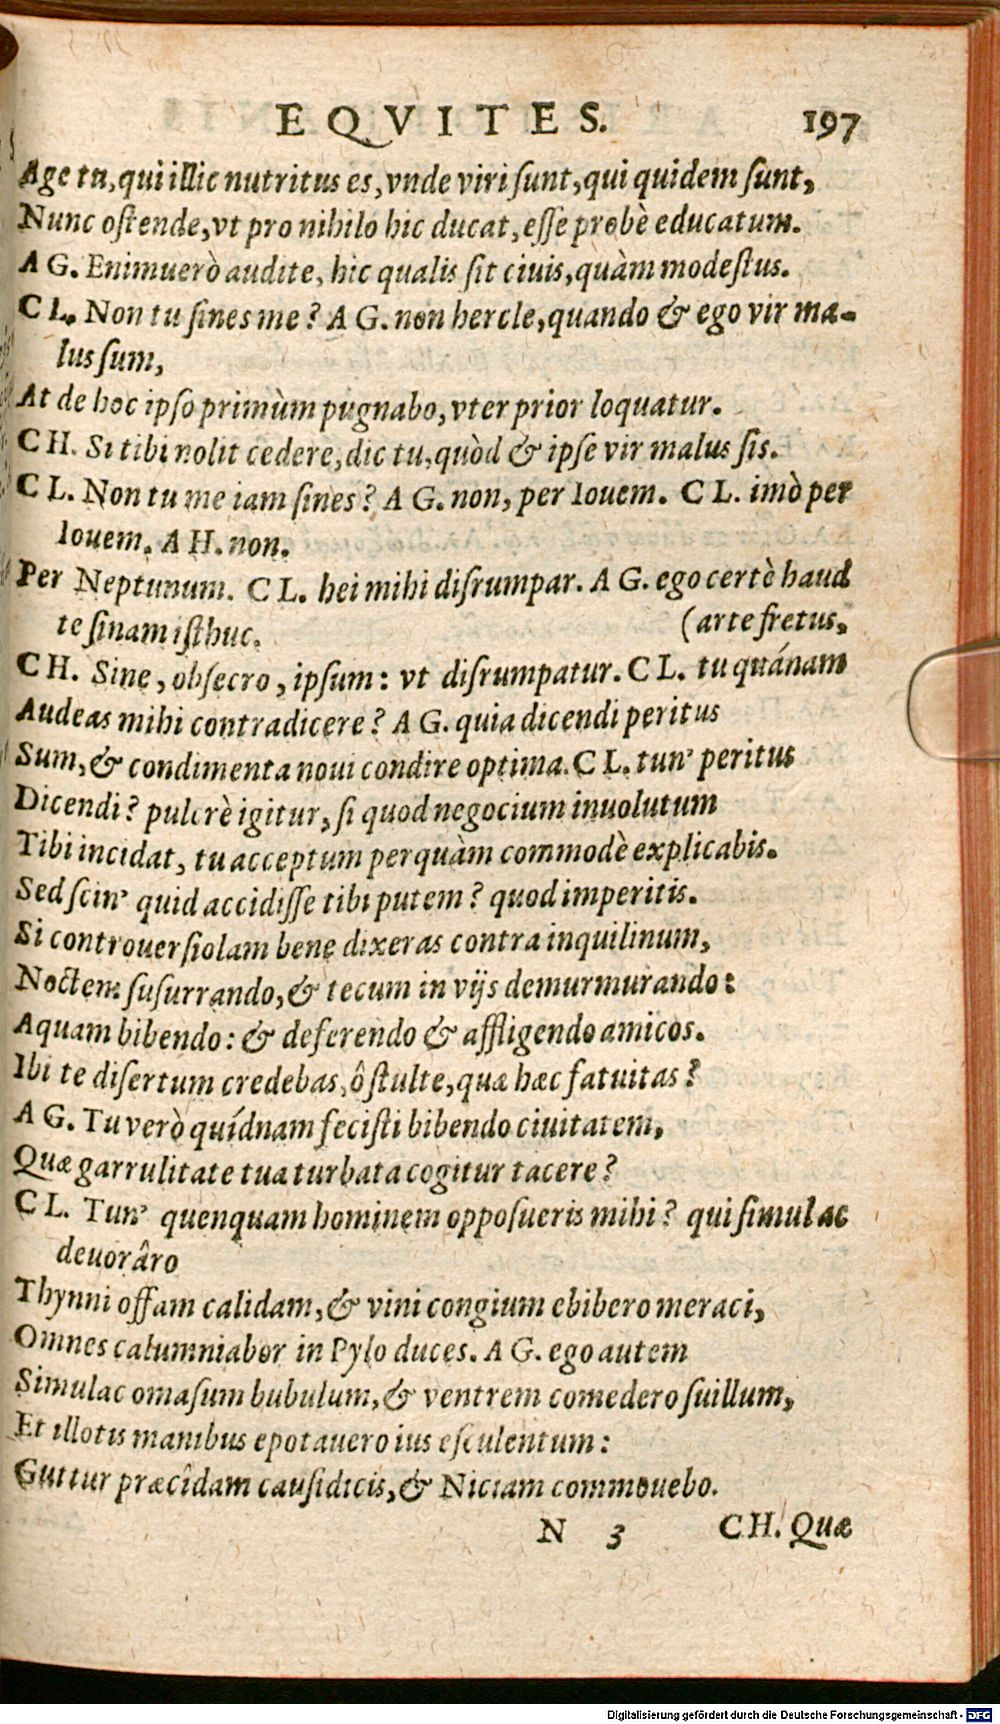 EQVITES. 197
Age tu, qui illic nutritus es, vnde viri sunt, qui quidem sunt,
Nunc ostende, vt pro nihilo hic ducat, esse probè educatum.
AG. Enimuerò audite, hic qualis sit ciuis, quàm modestus.
CL. Non tu sines me? AG. non hercle, quando & ego vir ma-
lus sum,
At de hoc ipso primùm pugnabo, vter prior loquatur.
CH. Si tibi nolit cedere, dic tu, quòd & ipse vir malus sis.
CL. Non tu me iam sines? AG. non, per Iouem. CL. imò per
Iouem. AH. non.
Per Neptunum. CL. hei mihi disrumpar. AG. ego certè haud
te sinam isthuc. (arte fretus,
CH. Sine, obsecro, ipsum: vt disrumpatur. CL. tu quánam
Audeas mihi contradicere? AG. quia dicendi peritus
Sum, & condimenta noui condire optima. CL. tun' peritus
Dicendi? pulcrè igitur, si quod negocium inuolutum
Tibi incidat, tu acceptum perquàm commodè explicabis.
Sed scin' quid accidisse tibi putem? quod imperitis.
Si controuersiolam bene dixeras contra inquilinum,
Noctem susurrando, & tecum in vijs demurmurando:
Aquam bibendo: & deferendo & affligendo amicos.
Ibi te disertum credebas, ô stulte, quæ hæc fatuitas?
AG. Tu verò quídnam fecisti bibendo ciuitatem,
Quæ garrulitate tua turbata cogitur tacere?
CL. Tun' quenquam hominem opposueris mihi? qui simulac
deuorâro
Thynni offam calidam, & vini congium ebibero meraci,
Omnes calumniabor in Pylo duces. AG. ego autem
Simulac omasum bubulum, & ventrem comedero suillum,
Et illotis manibus epotauero ius esculentum:
Guttur præcîdam causidicis, & Niciam commouebo.
N 3 CH. Quæ
Digitalisierung gefördert durch die Deutsche Forschungsgemeinschaft - DFG